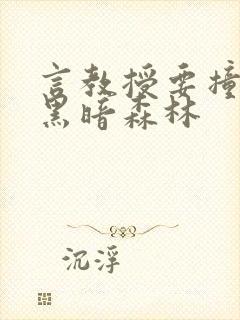 言教授要撞
黑暗森林
沉浮